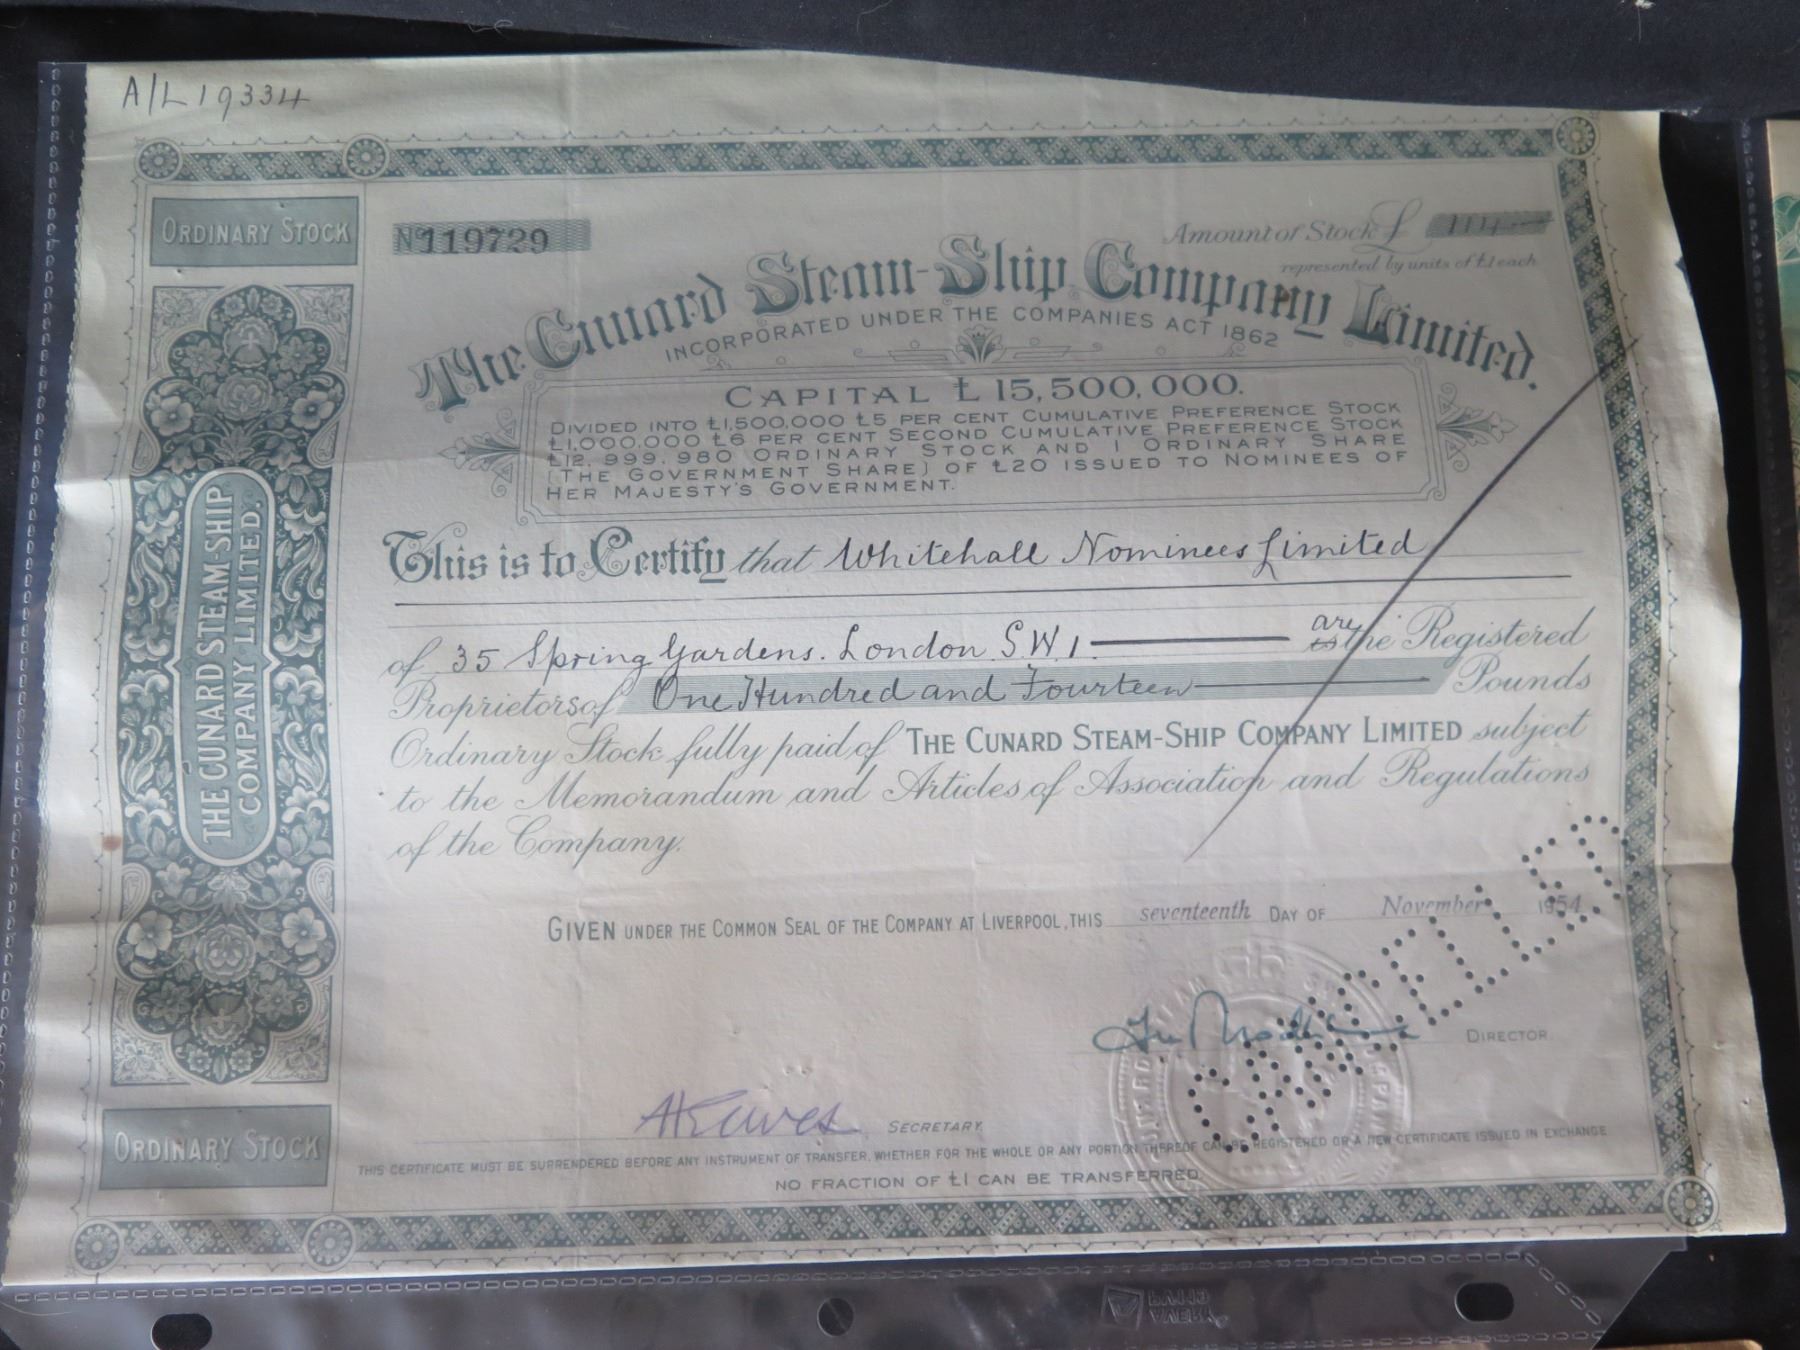 A/L 19334
ORDINARY STOCK
No 119729
Amount of Stock £ 114
represented by units of £1 each
The Cunard Steam-Ship Company Limited.
INCORPORATED UNDER THE COMPANIES ACT 1862
CAPITAL £15,500,000.
DIVIDED INTO £1,500,000 £5 PER CENT CUMULATIVE PREFERENCE STOCK
£1,000,000 £6 PER CENT SECOND CUMULATIVE PREFERENCE STOCK
£12,999,980 ORDINARY STOCK AND 1 ORDINARY SHARE
(THE GOVERNMENT SHARE) OF £20 ISSUED TO NOMINEES OF
HER MAJESTY'S GOVERNMENT.
This is to Certify that Whitehall Nominees Limited
of 35 Spring Gardens. London S.W.1. are is the Registered
Proprietors of One Hundred and Fourteen Pounds
Ordinary Stock fully paid of THE CUNARD STEAM-SHIP COMPANY LIMITED subject
to the Memorandum and Articles of Association and Regulations
of the Company.
GIVEN UNDER THE COMMON SEAL OF THE COMPANY AT LIVERPOOL, THIS seventeenth DAY OF November 1954
CANCELLED
DIRECTOR
SECRETARY.
THIS CERTIFICATE MUST BE SURRENDERED BEFORE ANY INSTRUMENT OF TRANSFER, WHETHER FOR THE WHOLE OR ANY PORTION THEREOF CAN BE REGISTERED OR A NEW CERTIFICATE ISSUED IN EXCHANGE
NO FRACTION OF £1 CAN BE TRANSFERRED.
THE CUNARD STEAM-SHIP
COMPANY LIMITED.
ORDINARY STOCK